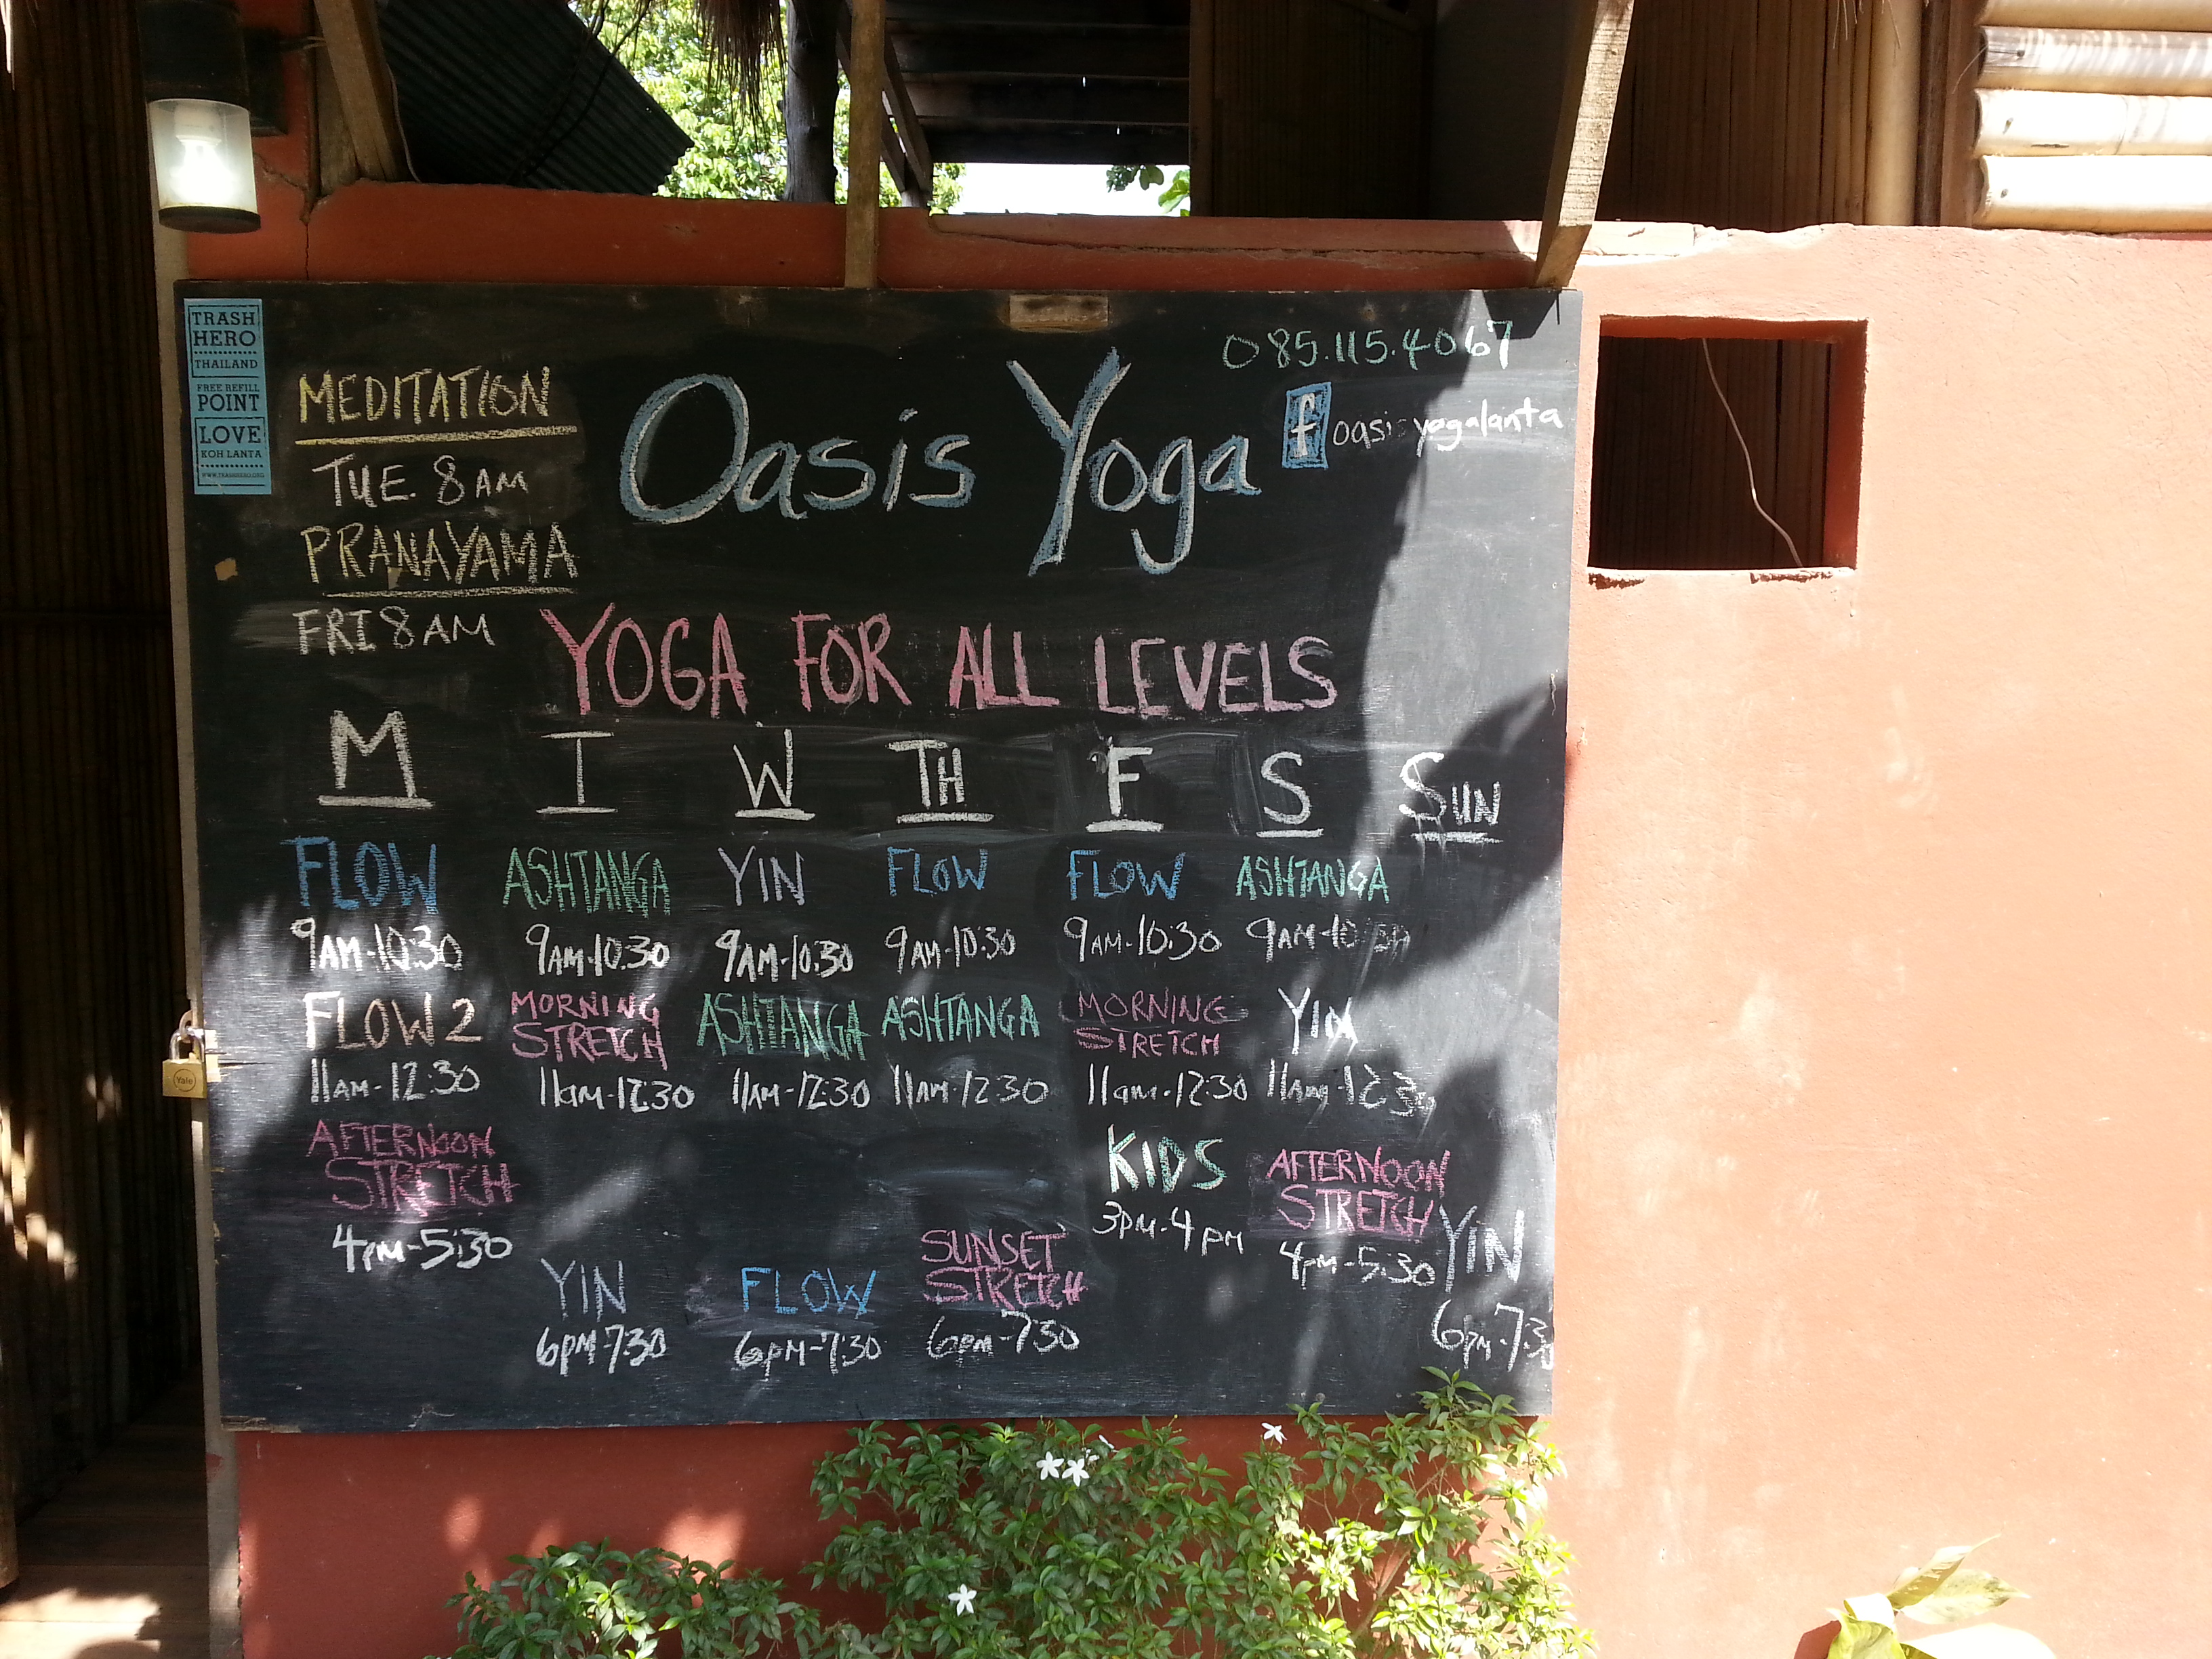 TRASH
HERO
THAILAND
FREE REFILL
POINT
LOVE
KOH LANTA
WWW.TRASHHERO.ORG
MEDITATION
TUE. 8AM
PRANAYAMA
FRI 8AM
Oasis Yoga
085.115.4067
f oasisyogalanta
YOGA FOR ALL LEVELS
M T W TH F S SUN
FLOW ASHTANGA YIN FLOW FLOW ASHTANGA
9AM-10:30 9AM-10:30 9AM-10:30 9AM-10:30 9AM-10:30 9AM-10:30
FLOW 2 MORNING STRETCH ASHTANGA ASHTANGA MORNING STRETCH YIN
11AM-12:30 11AM-12:30 11AM-12:30 11AM-12:30 11am-12:30 11AM-12:30
AFTERNOON
STRETCH
4PM-5:30
KIDS
3PM-4PM
AFTERNOON
STRETCH
4PM-5:30
YIN
6PM-7:30
FLOW
6PM-7:30
SUNSET
STRETCH
6PM-730
YIN
6PM-7:30
Yale